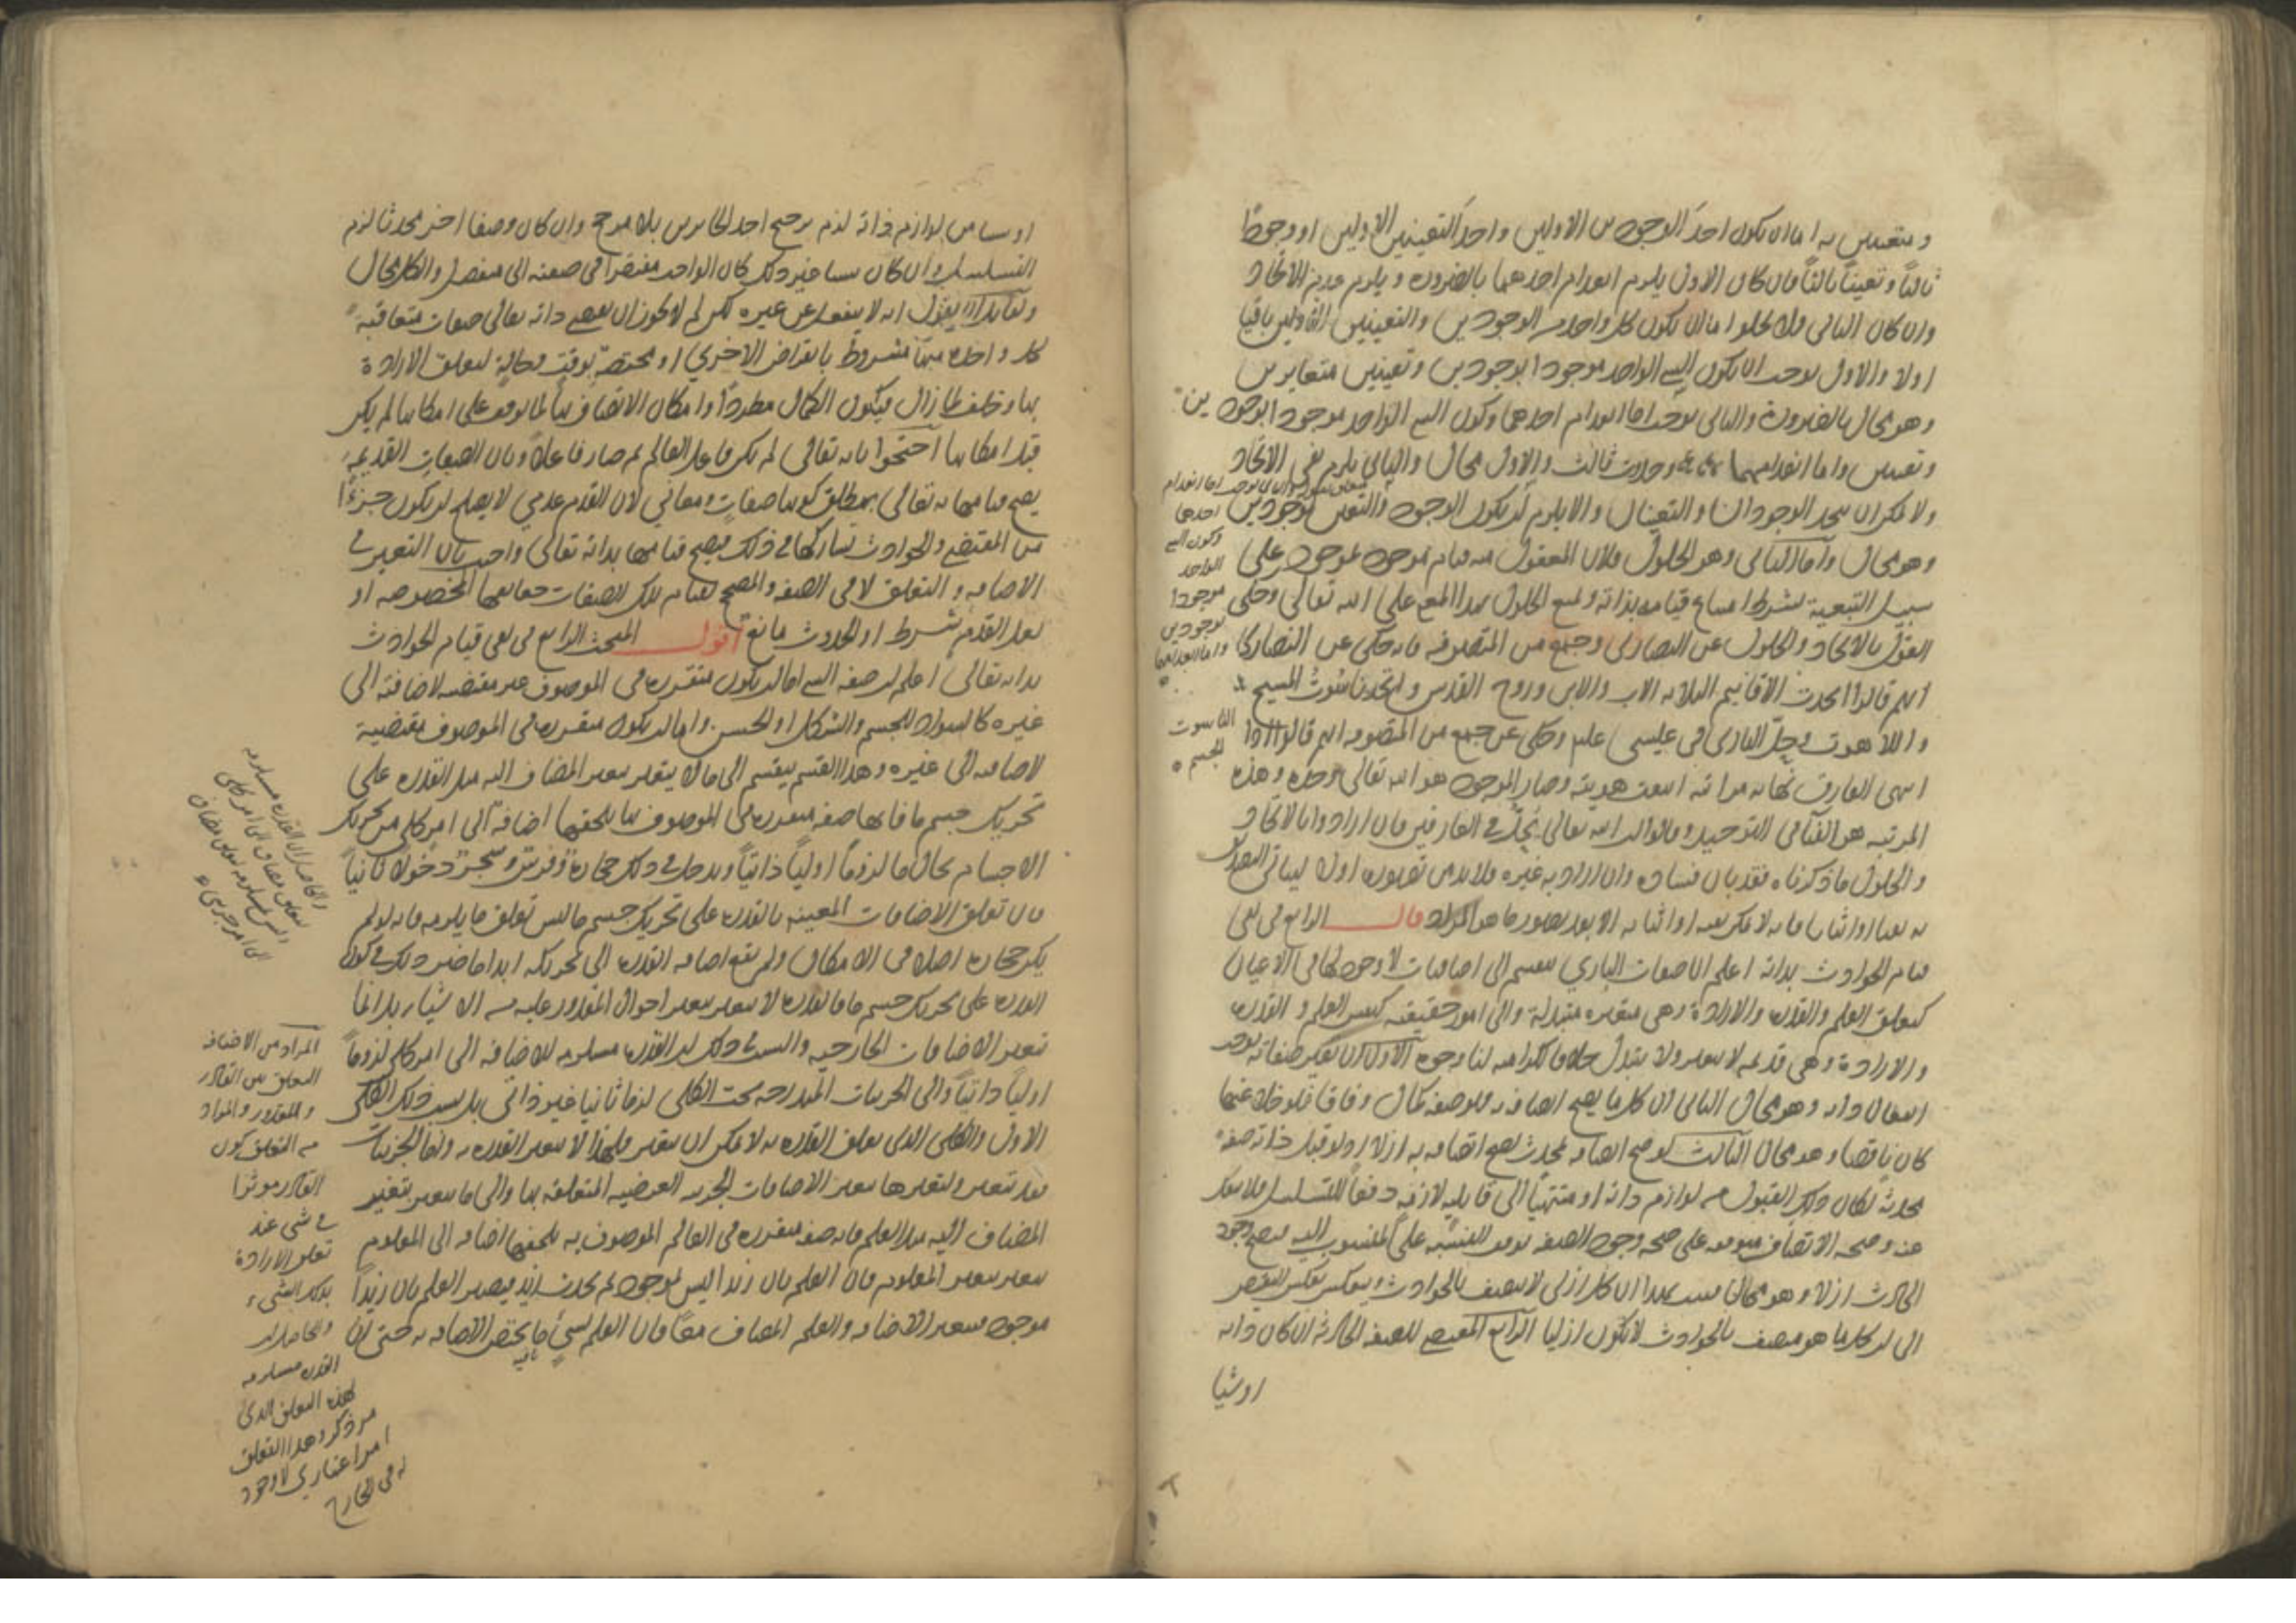 وتعينين به اما ان يكون احد الوجودين الاولين واحد التعينين الاولين او وجودا
ثالثا وتعينا ثالثا فان كان الاول يلزم انعدام احدهما بالضرورة ويلزم عدم الاتحاد
وان كان الثاني فلا يخلوا اما ان يكون كل واحد من الوجودين والتعينين الاولين باقيا
اولا والاول يوجب ان يكون الشي الواحد موجودا بوجودين وتعينين متغايرين
وهو محال بالضرورة والثاني يوجب اما انعدام احدهما وكون الشي الواحد موجودا بوجودين
وتعينين واما انعدامهما وحدوث ثالث والاول محال والثاني يلزم نفي الاتحاد
ولا يمكن ان يتحد الوجودان والتعينان والا يلزم ان يكون الوجود والتعين موجودين
وهو محال واما الثاني وهو الحلول فلان المعقول منه قيام موجود بموجود على
سبيل التبعية بشرط امتناع قيامه بذاته ولمنع الحلول بهذا المعنى على الله تعالى وحكي
القول بالاتحاد والحلول عن النصارى وجمع من المتصوفه فانه حكي عن النصارى
انهم قالوا اتحدت الاقانيم الثلاثه الاب والابن وروح القدس واتحد ناسوت المسيح
واللاهوت وحل الباري في عيسى عليه وحكي عن جمع من المتصوفه انهم قالوا اذا
انتهى العارف نهايه مراتبه انتفت هويته وصار الموجود هو الله تعالى وحده وهذه
المرتبه هو الفناء في التوحيد وقالوا ان الله تعالى يحل في العارفين فان ارادوا بالاتحاد
والحلول ما ذكرناه فقد بان فساده وان ارادوا به غيره فلا بد من تصويره اولا ليتأتى التصديق
به نفيا او اثباتا فانه لا يمكن نفيه او اثباته الا بعد تصور ما هو المراد قال الرابع في نفي
قيام الحوادث بذاته اعلم ان صفات الباري تنقسم الى اضافات لا وجود لها في الاعيان
كتعلق العلم والقدرة والارادة وهي متغيره متبدلة والى امور حقيقيه كنفس العلم والقدرة
والارادة وهي قديمه لا تتغير ولا تتبدل خلافا للكراميه لنا وجوه الاول ان تغير صفاته يوجب
انفعال ذاته وهو محال الثاني ان كل ما يصح اتصافه به فهو صفة كمال وفاقا فلو خلا عنها
كان ناقصا وهو محال الثالث لو صح اتصافه بمحدث لصح اتصافه به ازلا اذ لو قبل ذاته صفة
محدثه لكان ذلك القبول من لوازم ذاته او منتهيا الى قابليه لازمة دفعا للتسلسل فلا ينفك
عنه وصحه الاتصاف متوقفه على صحه وجود الصفه توقف النسبة على المنسوب اليه فيصح وجود
الحادث ازلا وهو محال فثبت بهذا ان كل ازلي لا يتصف بالحوادث وينعكس بعكس النقيض
الى ان كل ما هو متصف بالحوادث لا يكون ازليا الرابع المقتضي للصفه الحادثه ان كان ذاته
او شيا
اما انعدام
احدهما
وكون الشي
الواحد
موجودا
بوجودين
واما انعدامهما
الناسوت
الجسم
او شيا من لوازم ذاته لزم ترجيح احد الجايزين بلا مرجح وان كان وصفا اخر محدثا لزم
التسلسل وان كان شيا غير ذلك كان الواحد مفتقرا في صفته الى منفصل والكل محال
ولقائل ان يقول انه لا ينفعل عن غيره لكن لم لا يجوز ان يقتضي ذاته تعالى صفات متعاقبة
كل واحدة منها مشروط بانقراض الاخرى او مختصة بوقت وحالة لتعلق الارادة
بها وخلف لما زال فيكون الكمال مطردا وامكان الاتصاف بها لما توقف على امكانها لم يكن
قبل امكانها احتجوا بانه تعالى لم يكن فاعل العالم ثم صار فاعلا وبان الصفات القديمة
يصح قيامها به تعالى بمطلق كونها صفات ومعاني لان القدم عدمي لا يصلح ان يكون جزءا
من المقتضي والحوادث تشاركها في ذلك فيصح قيامها بذاته تعالى واجيب بان التغير في
الاضافه والتعلق لا في الصفه والمصحح لقيام تلك الصفات حقايقها المخصوصه او
لعل القدم شرط او الحدوث مانع اقول المبحث الرابع في نفي قيام الحوادث
بذاته تعالى اعلم ان صفه الشي اما ان يكون متقررة في الموصوف غير مقتضيه لاضافته الى
غيره كالسواد للجسم والشكل او الحسن واما ان يكون متقررة في الموصوف مقتضية
لاضافته الى غيره وهذا القسم ينقسم الى ما لا يتغير بتغير المضاف اليه مثل القدرة على
تحريك جسم ما فانها صفه متقررة في الموصوف بها يلحقها اضافة الى امر كلي من تحريك
الاجسام بحال ما لزوما اوليا ذاتيا ويدخل في ذلك حجارة وفرس وشجر دخولا ثانيا
فان تعلق الاضافات المعينه بالقدرة على تحريك جسم ما ليس تعلق ما يلزمه فانه لو لم
يكن حجارة اصلا في الامكان ولم يقع اضافه القدرة الى تحريكه ابدا ما ضر ذلك في كون
القدرة على تحريك جسم ما فالقدرة لا تتغير بتغير احوال المقدور عليه من الاشيا بل انما
تتغير الاضافات الخارجيه والسبب في ذلك ان القدرة مستلزمه للاضافه الى امر كلي لزوما
اوليا ذاتيا والى الجزئيات المندرجه تحت الكلي لزما ثانيا غير ذاتي بل بسبب ذلك الكلي
الاول والكلي الذي تعلق القدرة به لا يمكن ان يتغير فلهذا لا يتغير القدرة به واما الجزئيات
فقد تتغير وبتغيرها يتغير الاضافات الجزئيه العرضيه المتعلقه بها والى ما يتغير بتغير
المضاف اليه مثل العلم فانه صفه متقررة في العالم الموصوف به يلحقها اضافه الى المعلوم
يتغير بتغير المعلوم فان العلم بان زيدا ليس بموجود ثم يحدث زيد فيصير العلم بان زيدا
موجود فيتغير الاضافه والعلم المضاف معا فان العلم بشي ما يختص الاضافه به حتى ان
والحاصل ان القدرة مستلزمه
لتعلق مضاف الى امر كلي
الى امر جزئي
المراد من الاضافه
التعلق بين القادر
والمقدور والمراد
من التعلق كون
القادر موثرا
في شي عند
تعلق الارادة
بذلك الشيء
والحاصل ان
القدرة مستلزمه
لهذه التعلق الذي
مر ذكره وهذا التعلق
امر اعتباري لا وجود
له في الخارج